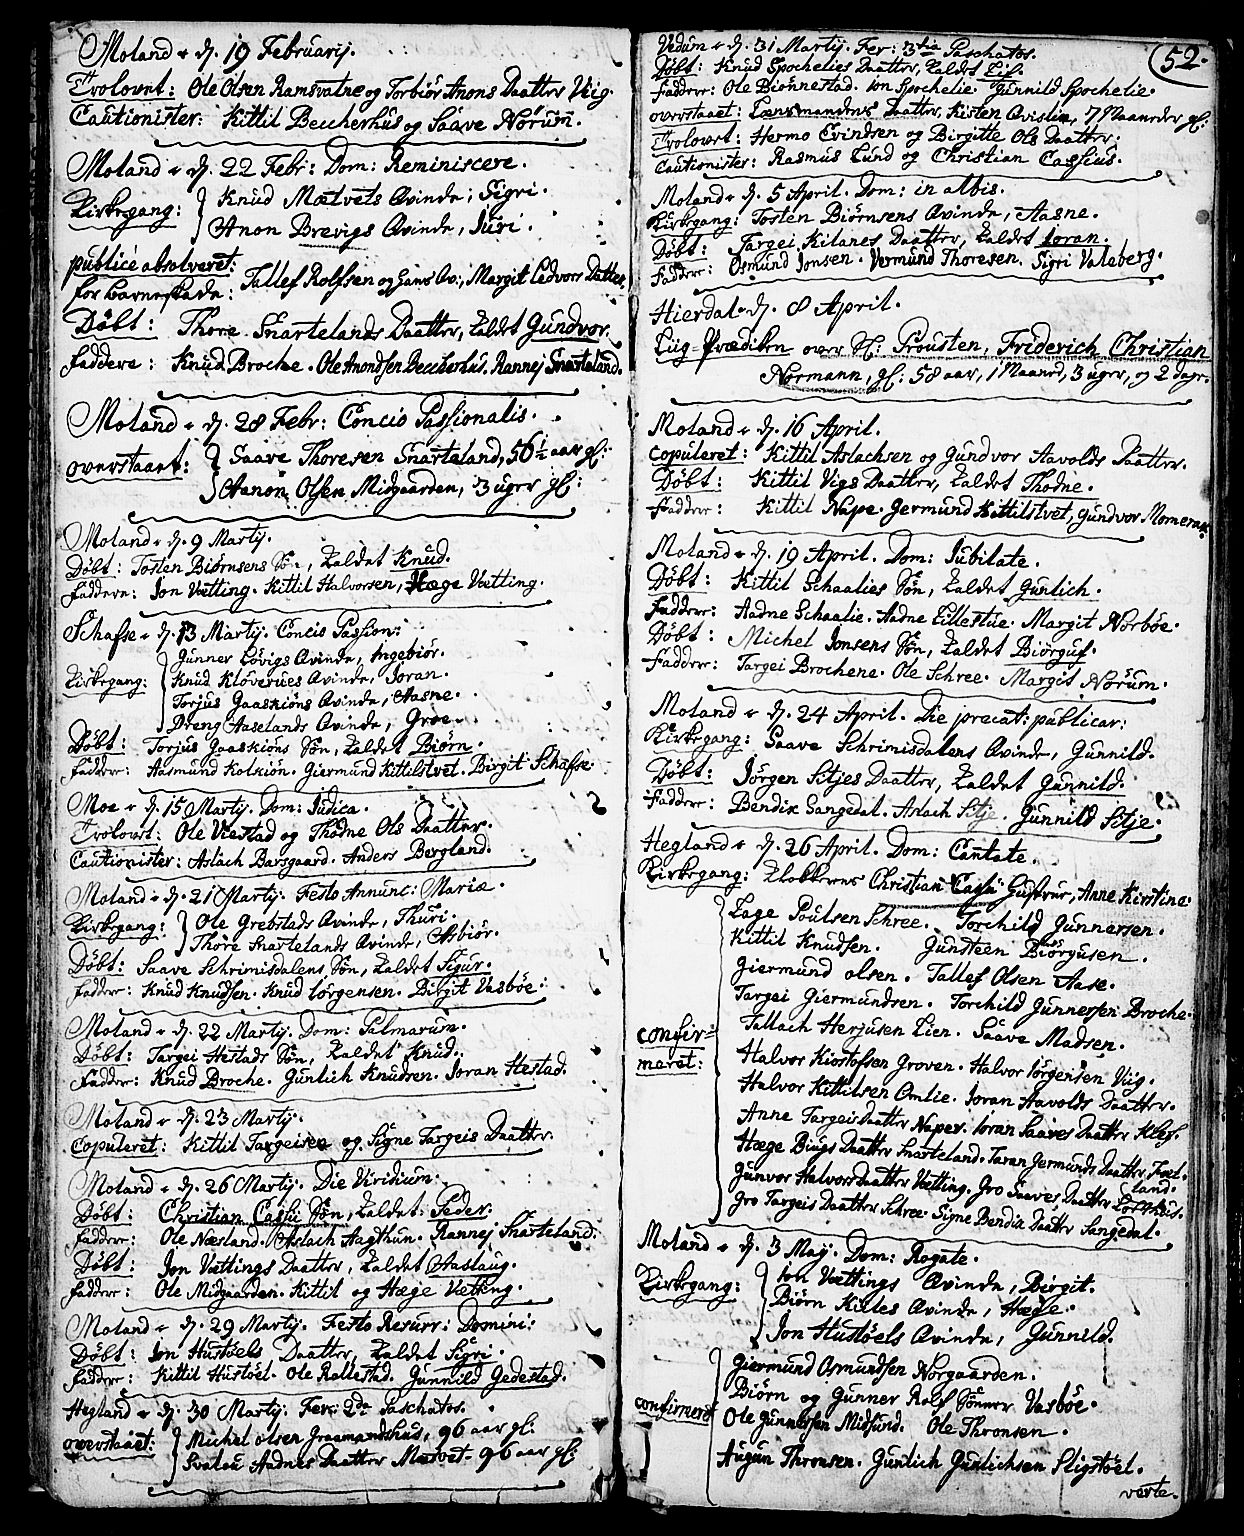 Moland d. 19 Februarij.
Trolovet: Ole Olsen Ramsvatne og Torbiör Anons Daatter Viig.
Cautionister: Kittil Beccherhus og Saave Norum.
Moland d. 22 Febr: Dom: Reminiscere.
Kirkegang: Knud Mætvets Qvinde, Sigri.
Anon Brevigs Qvinde, Juri.
publicè absolveret:
for Barnefade: Tallef Rolfsen og Hans Qv:, Margit Ledvors Datter.
Döbt: Thore Snartelands Daatter, kaldet Gundvor.
Faddere: Knud Broche. Ole Anondsen Beccherhus. Rannej Snarteland.
Moland d. 28 Febr: Concio Passionalis.
overstaaet: Saave Thoresen Snarteland, 56½ aar gl:
Aanon Olsen Midgaarden, 3 uger gl:
Moland d. 9 Martij.
Döbt: Tosten Biörnsens Sön, kaldet Knud.
Faddere: Jon Vætting. Kittil Halvorsen, Hæge Vætting.
Schafse d. 13 Martij. Concio Passion:
Gunner Lövigs Qvinde, Ingebiör.
Kirkegang: Knud Klöverues Qvinde, Joran.
Torjus Gaaskiöns Qvinde, Aasne.
Dreng Aaselands Qvinde, Groe.
Döbt: Torjus Gaaskions Sön, kaldet Biörn.
Fadder: Aasmund Kolkiön. Giermund Kittilstvet. Birgit Schafse.
Moe d. 15 Martij. Dom: Judica.
Trolovet: Ole Vrestad og Thodne Ols Daatter.
Cautionister: Aslach Barsgaard. Anders Bergland.
Moland d. 21 Martij. Festo Annunc: Mariæ.
Kirkegang: Ole Grebstads Qvinde, Thuri.
Thore Snartelands Qvinde, Asbiör.
Döbt: Saave Schrimisdalens Sön, kaldet Sigur.
Fadder: Knud Knudsen. Knud Jörgensen. Birgit Vasböe.
Moland d. 22 Martij. Dom: Palmarum.
Döbt: Targei Hestads Sön, kaldet Knud.
Fadder: Knud Broche. Gunlich Knudsen. Joran Hestad.
Moland d. 23 Martij.
Copuleret: Kittil Targeisen og Signe Targeis Daatter.
Moland d. 26 Martij. Die Viridium.
Döbt: Christian Cassii Sön, kaldet: Peder.
Fadder: Ole Næsland. Aslach Aagthun. Rannej Snarteland.
Döbt: Jon Vættings Daatter, kaldet Aaslaug.
Fadder: Ole Midgaarden. Kittil og Hæge Vætting.
Moland d. 29 Martij. Festo Resurr: Domini.
Döbt: Jon Hustöels Daatter, kaldet Sigri.
Fadder: Kittil Hustöel. Ole Rallestad. Gunnild Gedestad.
Hegland d. 30 Martij. Fer: 2da Paschatos.
overstaaet: Michel Olsen Graamandshus, 96 aar gl:
Svalou Aadnes Daatter Mætvet. 96 aar gl:
52.
Vedum d. 31 Martij. Fer: 3tia Paschatos.
Döbt: Knud Spochelies Daatter, kaldet Lif.
Fadder: Ole Biönnestad. Jon Spochelie. Gunnild Spochelie.
overstaaet: Lænsmandens Daatter, Kisten Qvistin, 7 Maaneder gl:
Trolovet: Hermo Evindsen og Birgitte Ols Daatter.
Cautionister: Rasmus Lund og Christian Cassius.
Moland d. 5 April. Dom: in albis.
Kirkegang: Tosten Biörnsens Qvinde, Aasne.
Döbt: Targei Kilanes Daatter, kaldet Joran.
Fadder: Osmund Jonsen. Vermund Thoresen. Sigri Valeberg.
Hierdal d. 8 April.
Liig Prædiken over Sl: Prousten, Friderich Christian
Normann, gl: 58 aar, 1 Maaned, 3 uger, og 2 dage.
Moland d. 16 April.
Copuleret: Kittil Aslachsen og Gundvor Aavolds Daatter.
Döbt: Kittil Vigs Daatter, kaldet Thodne.
Fadder: Kittil Nape. Germund Kittilstvet, Gundvor Momerak.
Moland d. 19 April. Dom: Jubilate.
Döbt: Kittil Schaalies Sön, kaldet Gunlich.
Fadder: Aadne Schaalie. Aadne Lillestue. Margit Norböe.
Döbt: Michel Jonsens Sön, kaldet Biörguf.
Fadder: Targei Brochene. Ole Schree. Margit Norum.
Moland d. 24 April. Die precat: publicar:
Kirkegang: Saave Schrimisdalens Qvinde, Gunnild.
Döbt: Jörgen Sitjes Daatter, kaldet Gunnild.
Fadder: Bendix Sangedal. Aslach Sitje. Gunnild Sitje.
Hegland d. 26 April. Dom: Cantate.
Kirkegang: Klokkerens Christian Cassii Hustrue, Anne Kirstine.
Lage Poulsen Schree. Torchild Gunnersen.
Kittil Knudsen. Gunsteen Biörgusen.
Giermund Olsen. Tallef Olsen Aase.
Targei Giermundsen. Torchild Gunnersen Broche.
Confir= Tallach Herjusen Lien. Saave Madsen.
meret: Halvor Kiostofsen Groven. Halvor Jörgensen Viig.
Halvor Kittilsen Omlie. Joran Aavolds Daatter.
Anne Targeis Daatter Naper. Joran Saaves Daatter Klef.
Hæge Biugs Daatter Snarteland. Taran Jermunds Daatter Tvet=
land.
Gunvor Halvors Daatter Vætting. Gro Saaves Daatter
Gro Targeis Daatter Schree. Signe Bendix Daatter Sangedal.
Moland d. 3 Maij. Dom: Rogate.
Kirkegang: Jon Vættings Qvinde, Birgit.
Biörn Kiltes Qvinde, Hæge.
Jon Hustöels Qvinde, Gunnild.
Giermund Osmundsen Norgaarden.
Biörn og Gunner Rolf Sönner Vasböe.
confirmeret Ole Gunnersen Midsund. Ole Thronsen.
Augun Thronsen. Gunlich Gunlichsen Sligstöel.
verte.